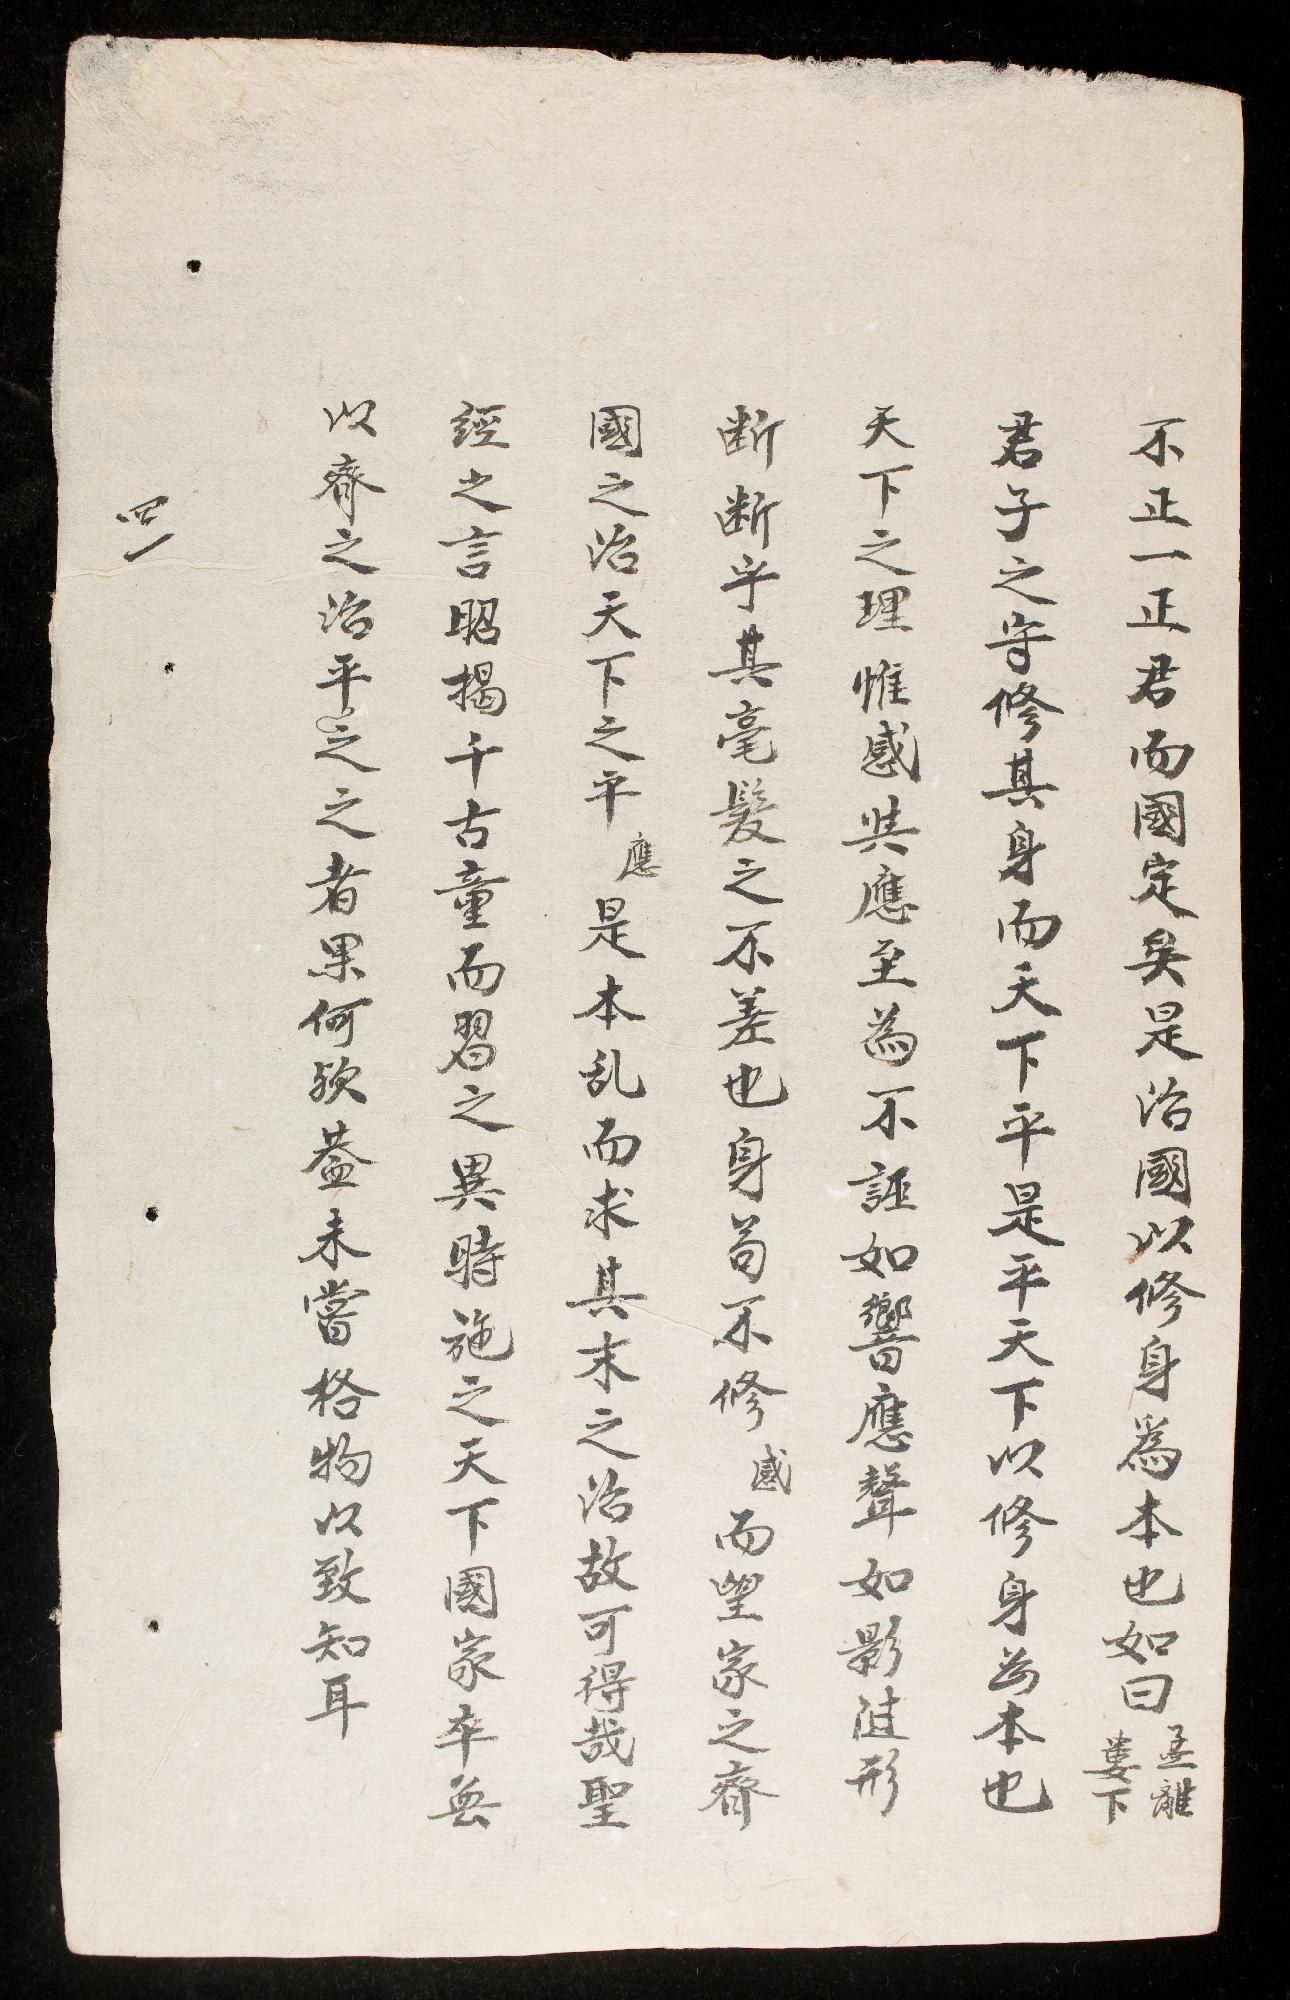 不正一正君而國定矣是治國以修身為本也如曰孟離婁下
君子之守修其身而天下平是平天下以修身为本也
天下之理惟感与應至為不誣如響應聲如影随形
断断乎其毫髮之不差也身苟不修感而望家之齊
國之治天下之平應是本乱而求其末之治故可得哉聖
經之言昭揭千古童而習之異時施之天下國家卒無
以齊之治平之之者果何欤蓋未嘗格物以致知耳
四